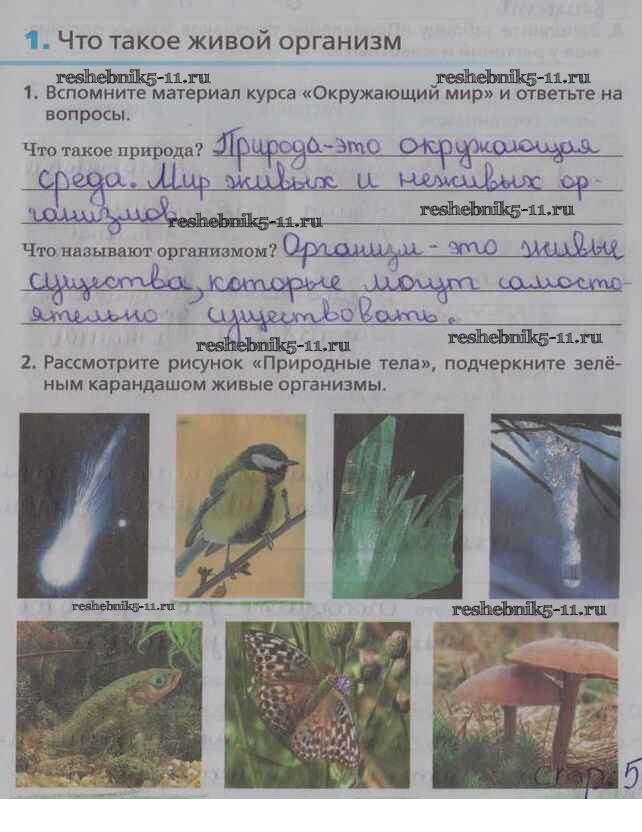 1. Что такое живой организм
reshebnik5-11.ru reshebnik5-11.ru
1. Вспомните материал курса «Окружающий мир» и ответьте на
вопросы.
Что такое природа? Природа-это окружающая
среда. Мир живых и неживых ор-
ганизмов
reshebnik5-11.ru reshebnik5-11.ru
Что называют организмом? Организм - это живые
существа, которые могут самосто-
ятельно существовать.
reshebnik5-11.ru reshebnik5-11.ru
2. Рассмотрите рисунок «Природные тела», подчеркните зелё-
ным карандашом живые организмы.
reshebnik5-11.ru reshebnik5-11.ru
стр. 5